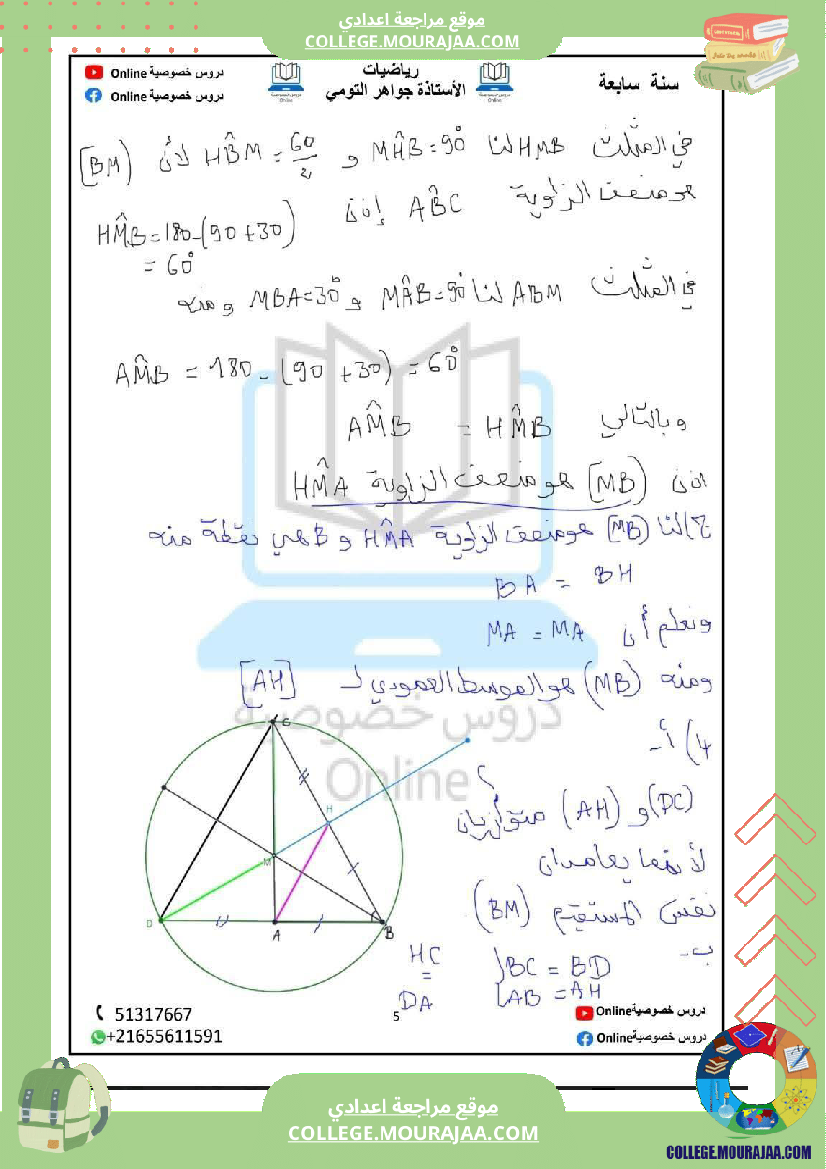 موقع مراجعة اعدادي
COLLEGE.MOURAJAA.COM
دروس خصوصية Online
دروس خصوصية Online
رياضيات
الأستاذة جواهر التومي
سنة سابعة
في المثلث HMB لنا MÂB=90° و HB̂M = 60/2 لأن [BM)
هو منصف الزاوية AB̂C إذن
HM̂B=180-(90+30)
= 60°
في المثلث ABM لنا MÂB=90° و MBA=30° ومنه
AM̂B = 180 - (90 +30) = 60°
وبالتالي HM̂B = AM̂B
اذن [MB) هو منصف الزاوية HM̂A
ج) لنا [MB) هو منصف الزاوية HM̂A و B هي نقطة منه
BA = BH
ونعلم أن MA = MA
ومنه (MB) هو الموسط العمودي لـ [AH]
4) أ-
(DC) و (AH) متوازيان
لأنهما يعامدان
نفس المستقيم (BM)
ب-
BC = BD
AB = AH
HC
=
DA
C
H
M
D
A
B
دروس خصوصية
Online
51317667
+21655611591
5
دروس خصوصية Online
دروس خصوصية Online
موقع مراجعة اعدادي
COLLEGE.MOURAJAA.COM
COLLEGE.MOURAJAA.COM